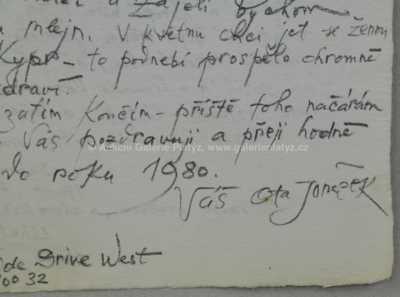 a zajeli bychom
mlejn. V květnu chci jet se ženou
Kypr - to podnebí prospělo chromně
zdraví.
zatím končím - příště toho načárám
Vás pozdravuji a přeji hodně
do roku 1980.
Váš Ota Janeček
Drive West
00 32
Aukční Galerie Platýz, www.galerieplatyz.cz